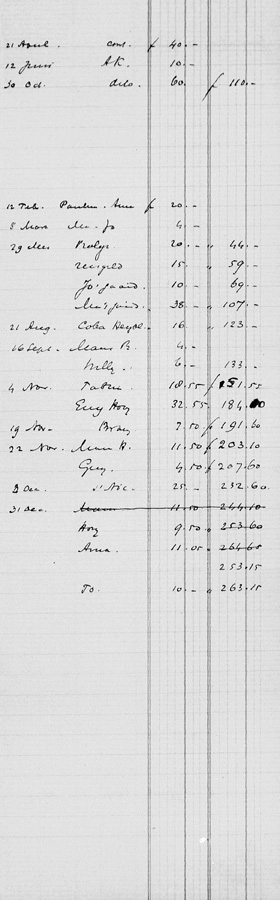 21 April. cont. f 40.-
12 Juni AK. 10.-
30 Oct. dito. 60. f 110.-
12 Feb. Paulin. Ann f 20.-
8 Mars M. Jo 4.-
29 Mei 20.- " 44.-
15. " 59.-
Jo's 10.- " 69.-
38.- " 107.-
21 Aug. Coba 16. " 123.-
16 Sept. Maria B. 4.-
Willy 6.- 133.-
4 Nov. 18.55 f 151.55
Eeuy Hory 32.55 184.10
19 Nov. 7.50 f 191.60
22 Nov. H. 11.50 f 203.10
Guy. 4.50 f 207.60
Dec. St Nic. 25.- 232.60
31 Dec. 11.50 244.10
Hory 9.50 " 253.60
Anna. 11.05 " 264.65
253.15
To. 10.- " 263.15